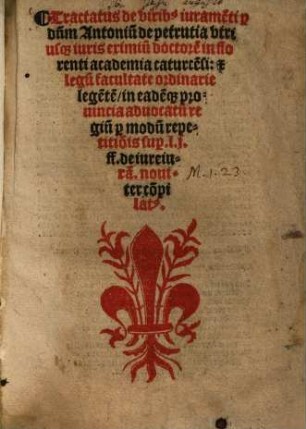 Tractatus de virib⁹ iuramẽti p
dñm Antoniũ de petrutia vtri
usq͗ iuris eximiũ doctorẽ in flo
renti academia caturcẽsi: ⁊
legũ facultate ordinarie
legẽtẽ/in eadẽq͗ pro⸗
uincia aduocatũ re
giũ p modũ repe⸗
titiõis sup. l. j.
ff. de iureiu⸗
rã. noui⸗
ter cõpi
lat⁹.
M.1.23